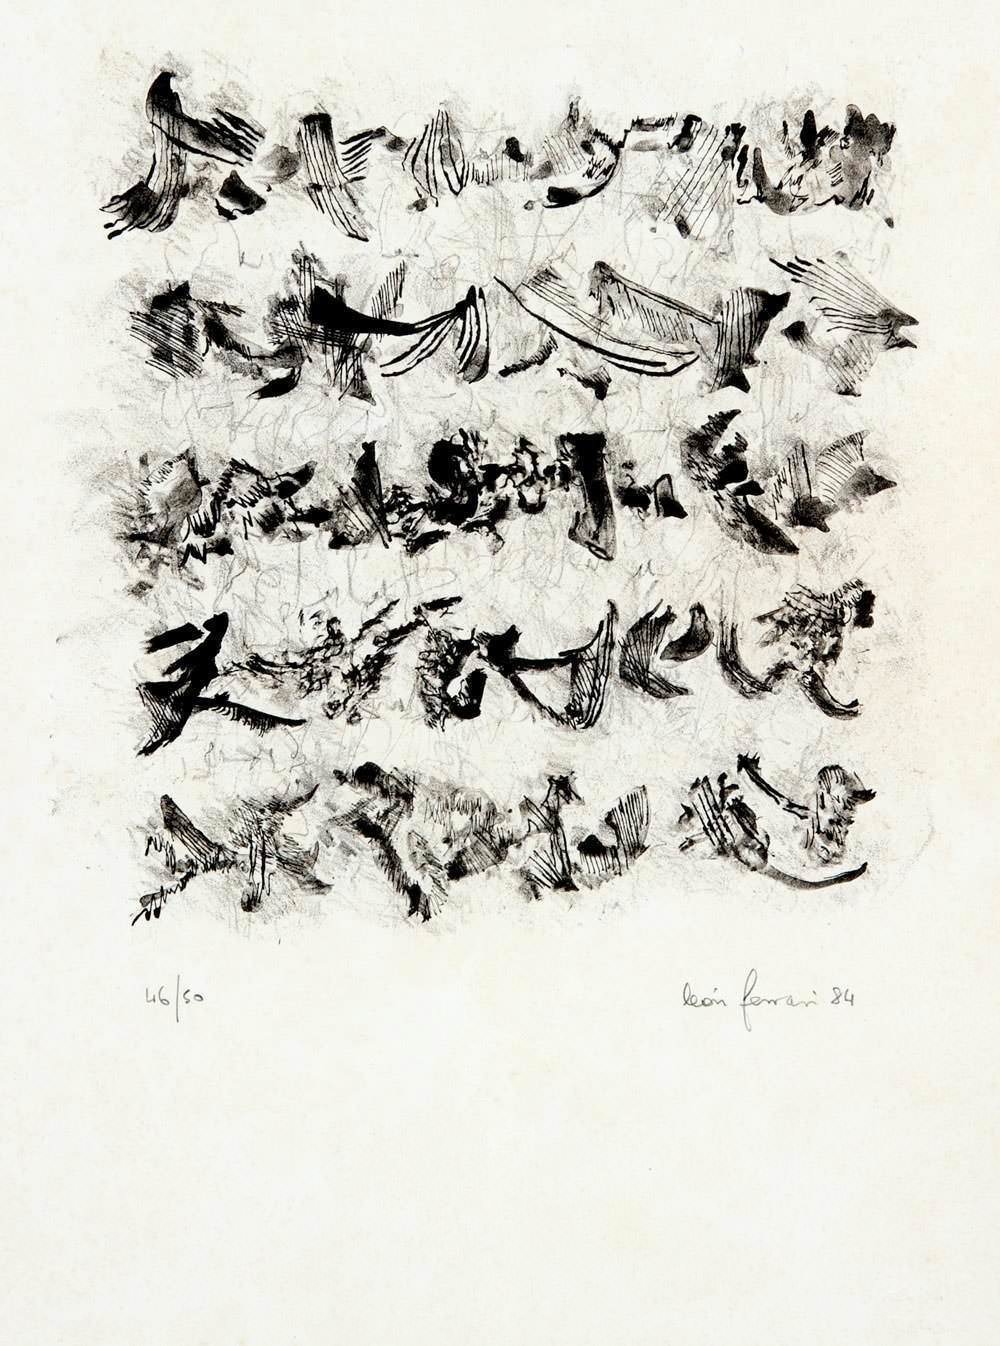 46/50
león ferrari 84